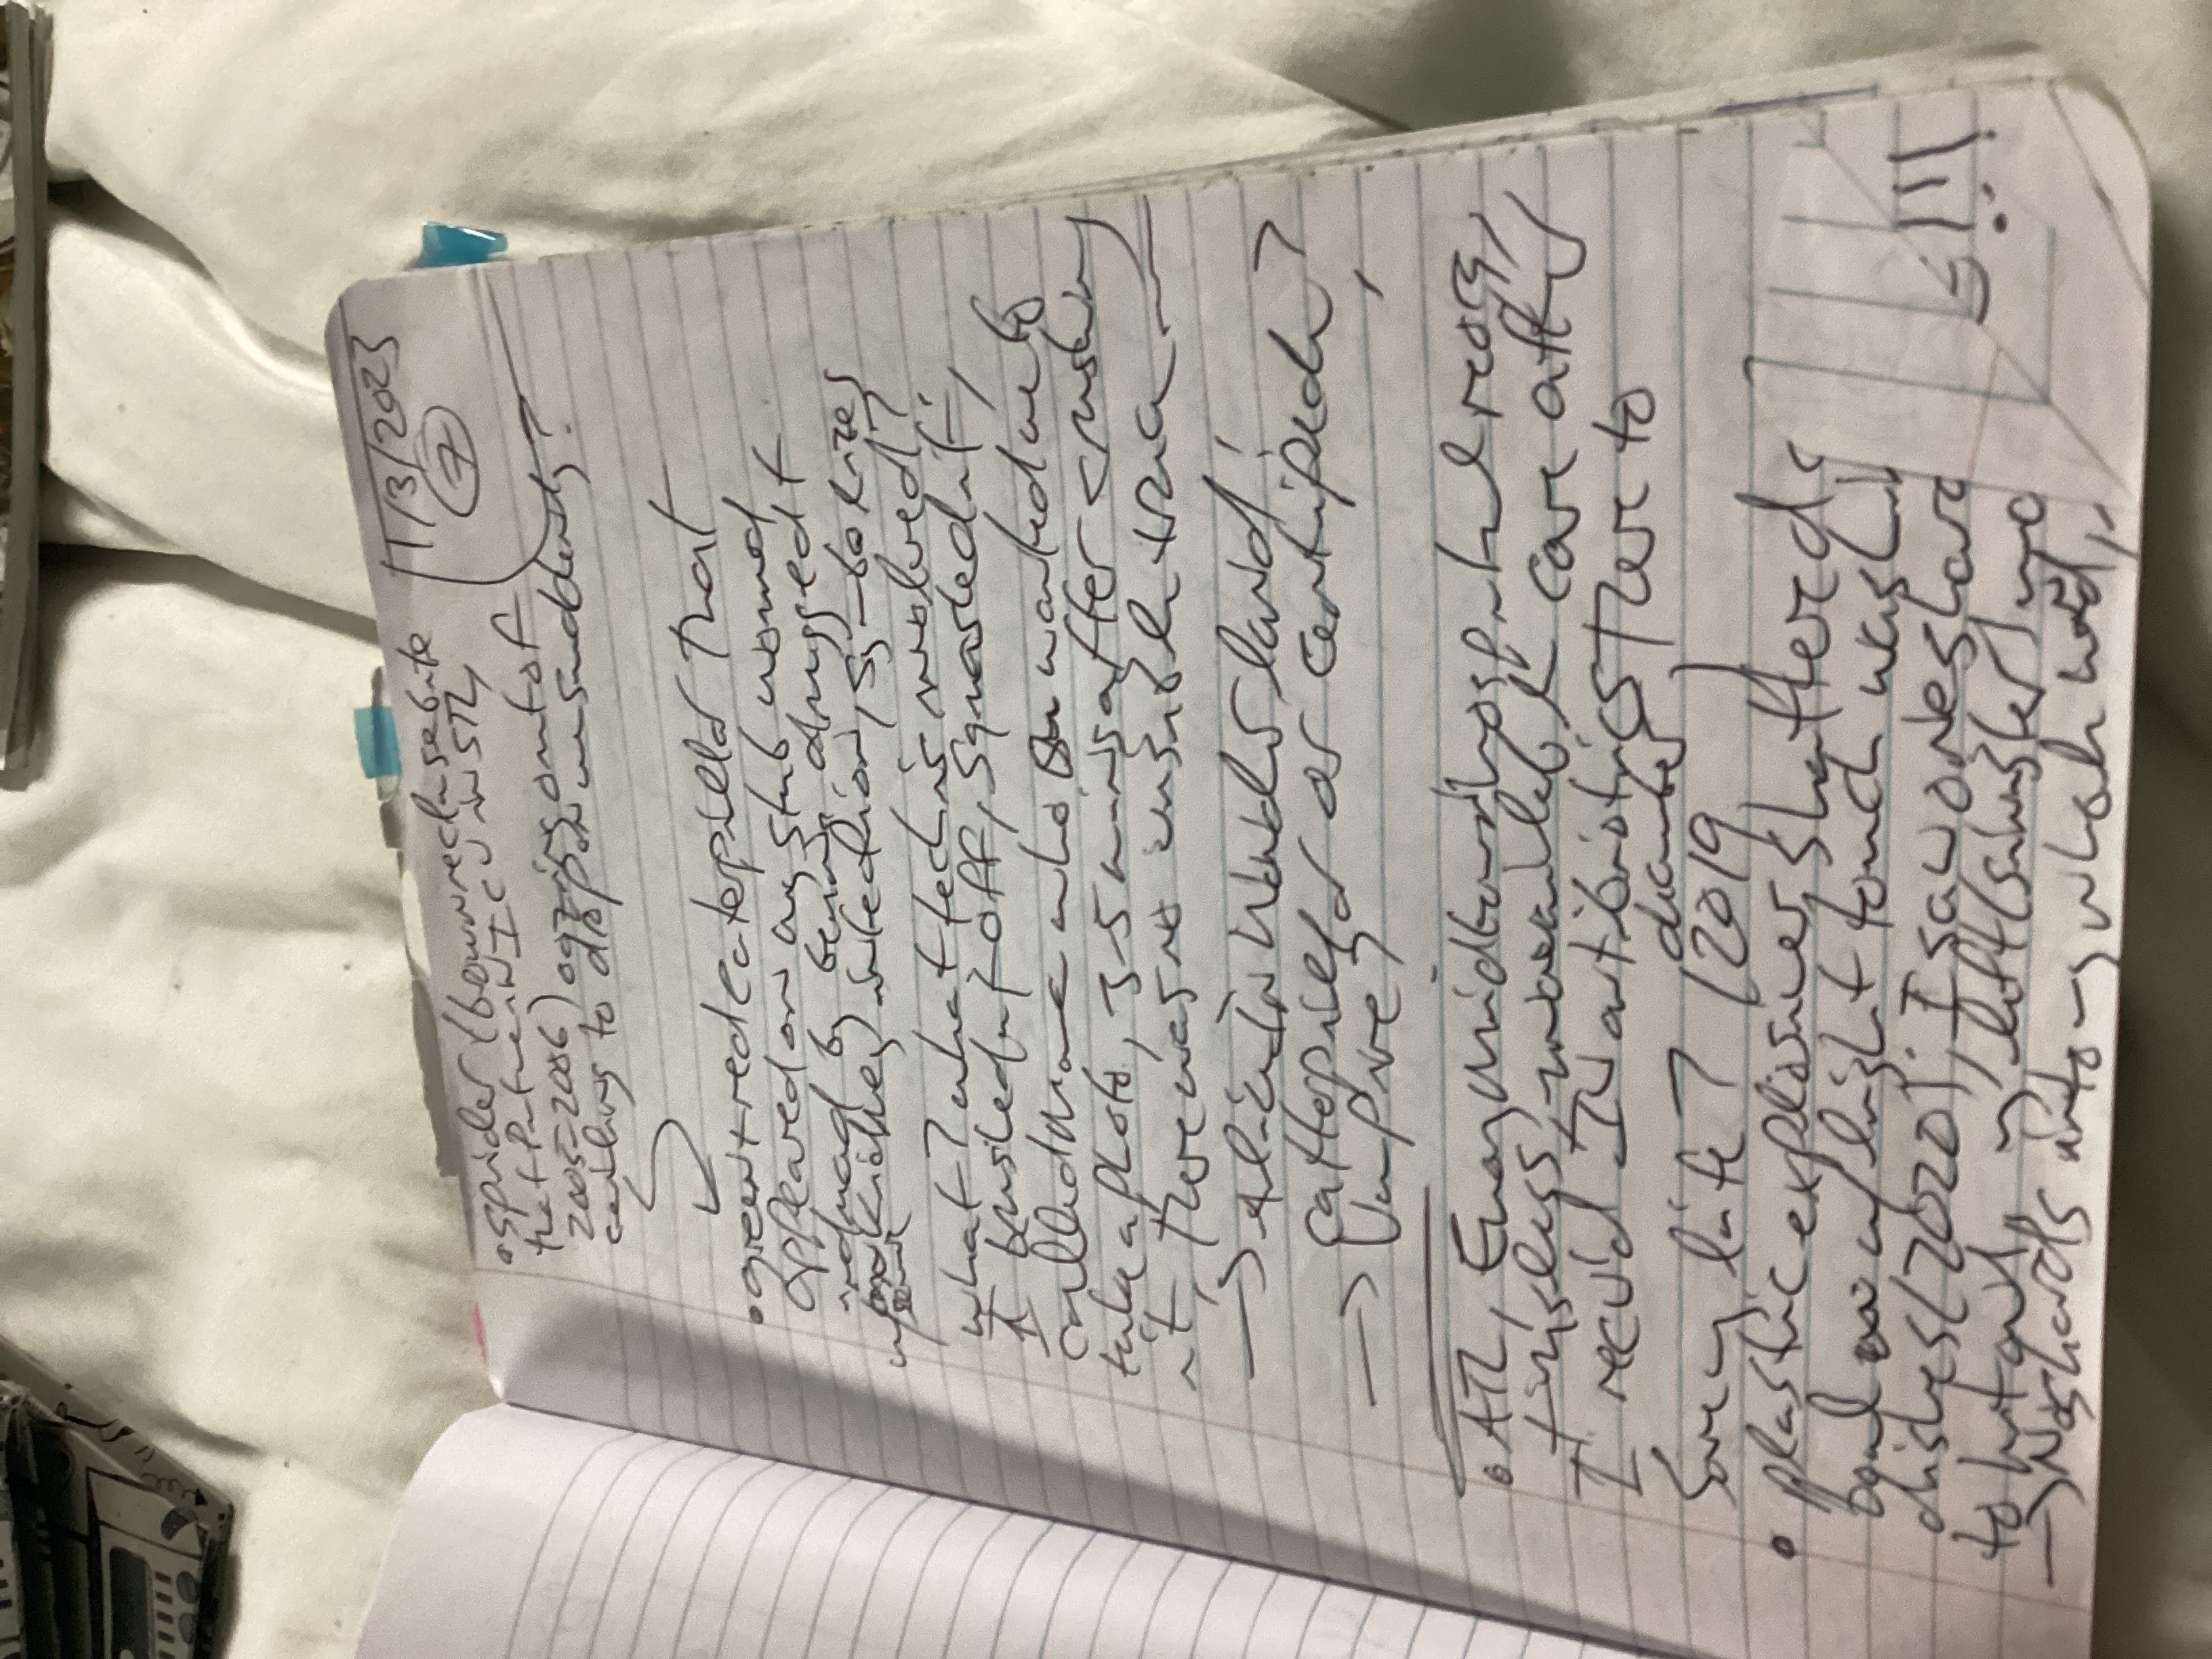 1/3/2023
7
• spider (brown recluse bite
that put me in ICU in STL,
2005-2006) oozing out of
ceiling to drop on me suddenly?
• green + red caterpiller that
appeared on my stub wound
induced by being drugged +
kidney infection, symbolizes
what? what tech is involved?
I brushed it off, squashed it,
called Mom who wanted me to
take a photo, 3-5 mins after crushing
it, there was no visible
→ Alice In Wonderland!
catterpiller or centipede?
→ Vampire?
• ATL, Emory Midtown hospital
care after
I recv'd IV antibiotics there to
december
Save my life? (2019)
• plastic explosives, shattered
bowl w/ light touch
dishes (2020); I saw one
to my left (sinister)
→ No shards into my whole hand,
!!!